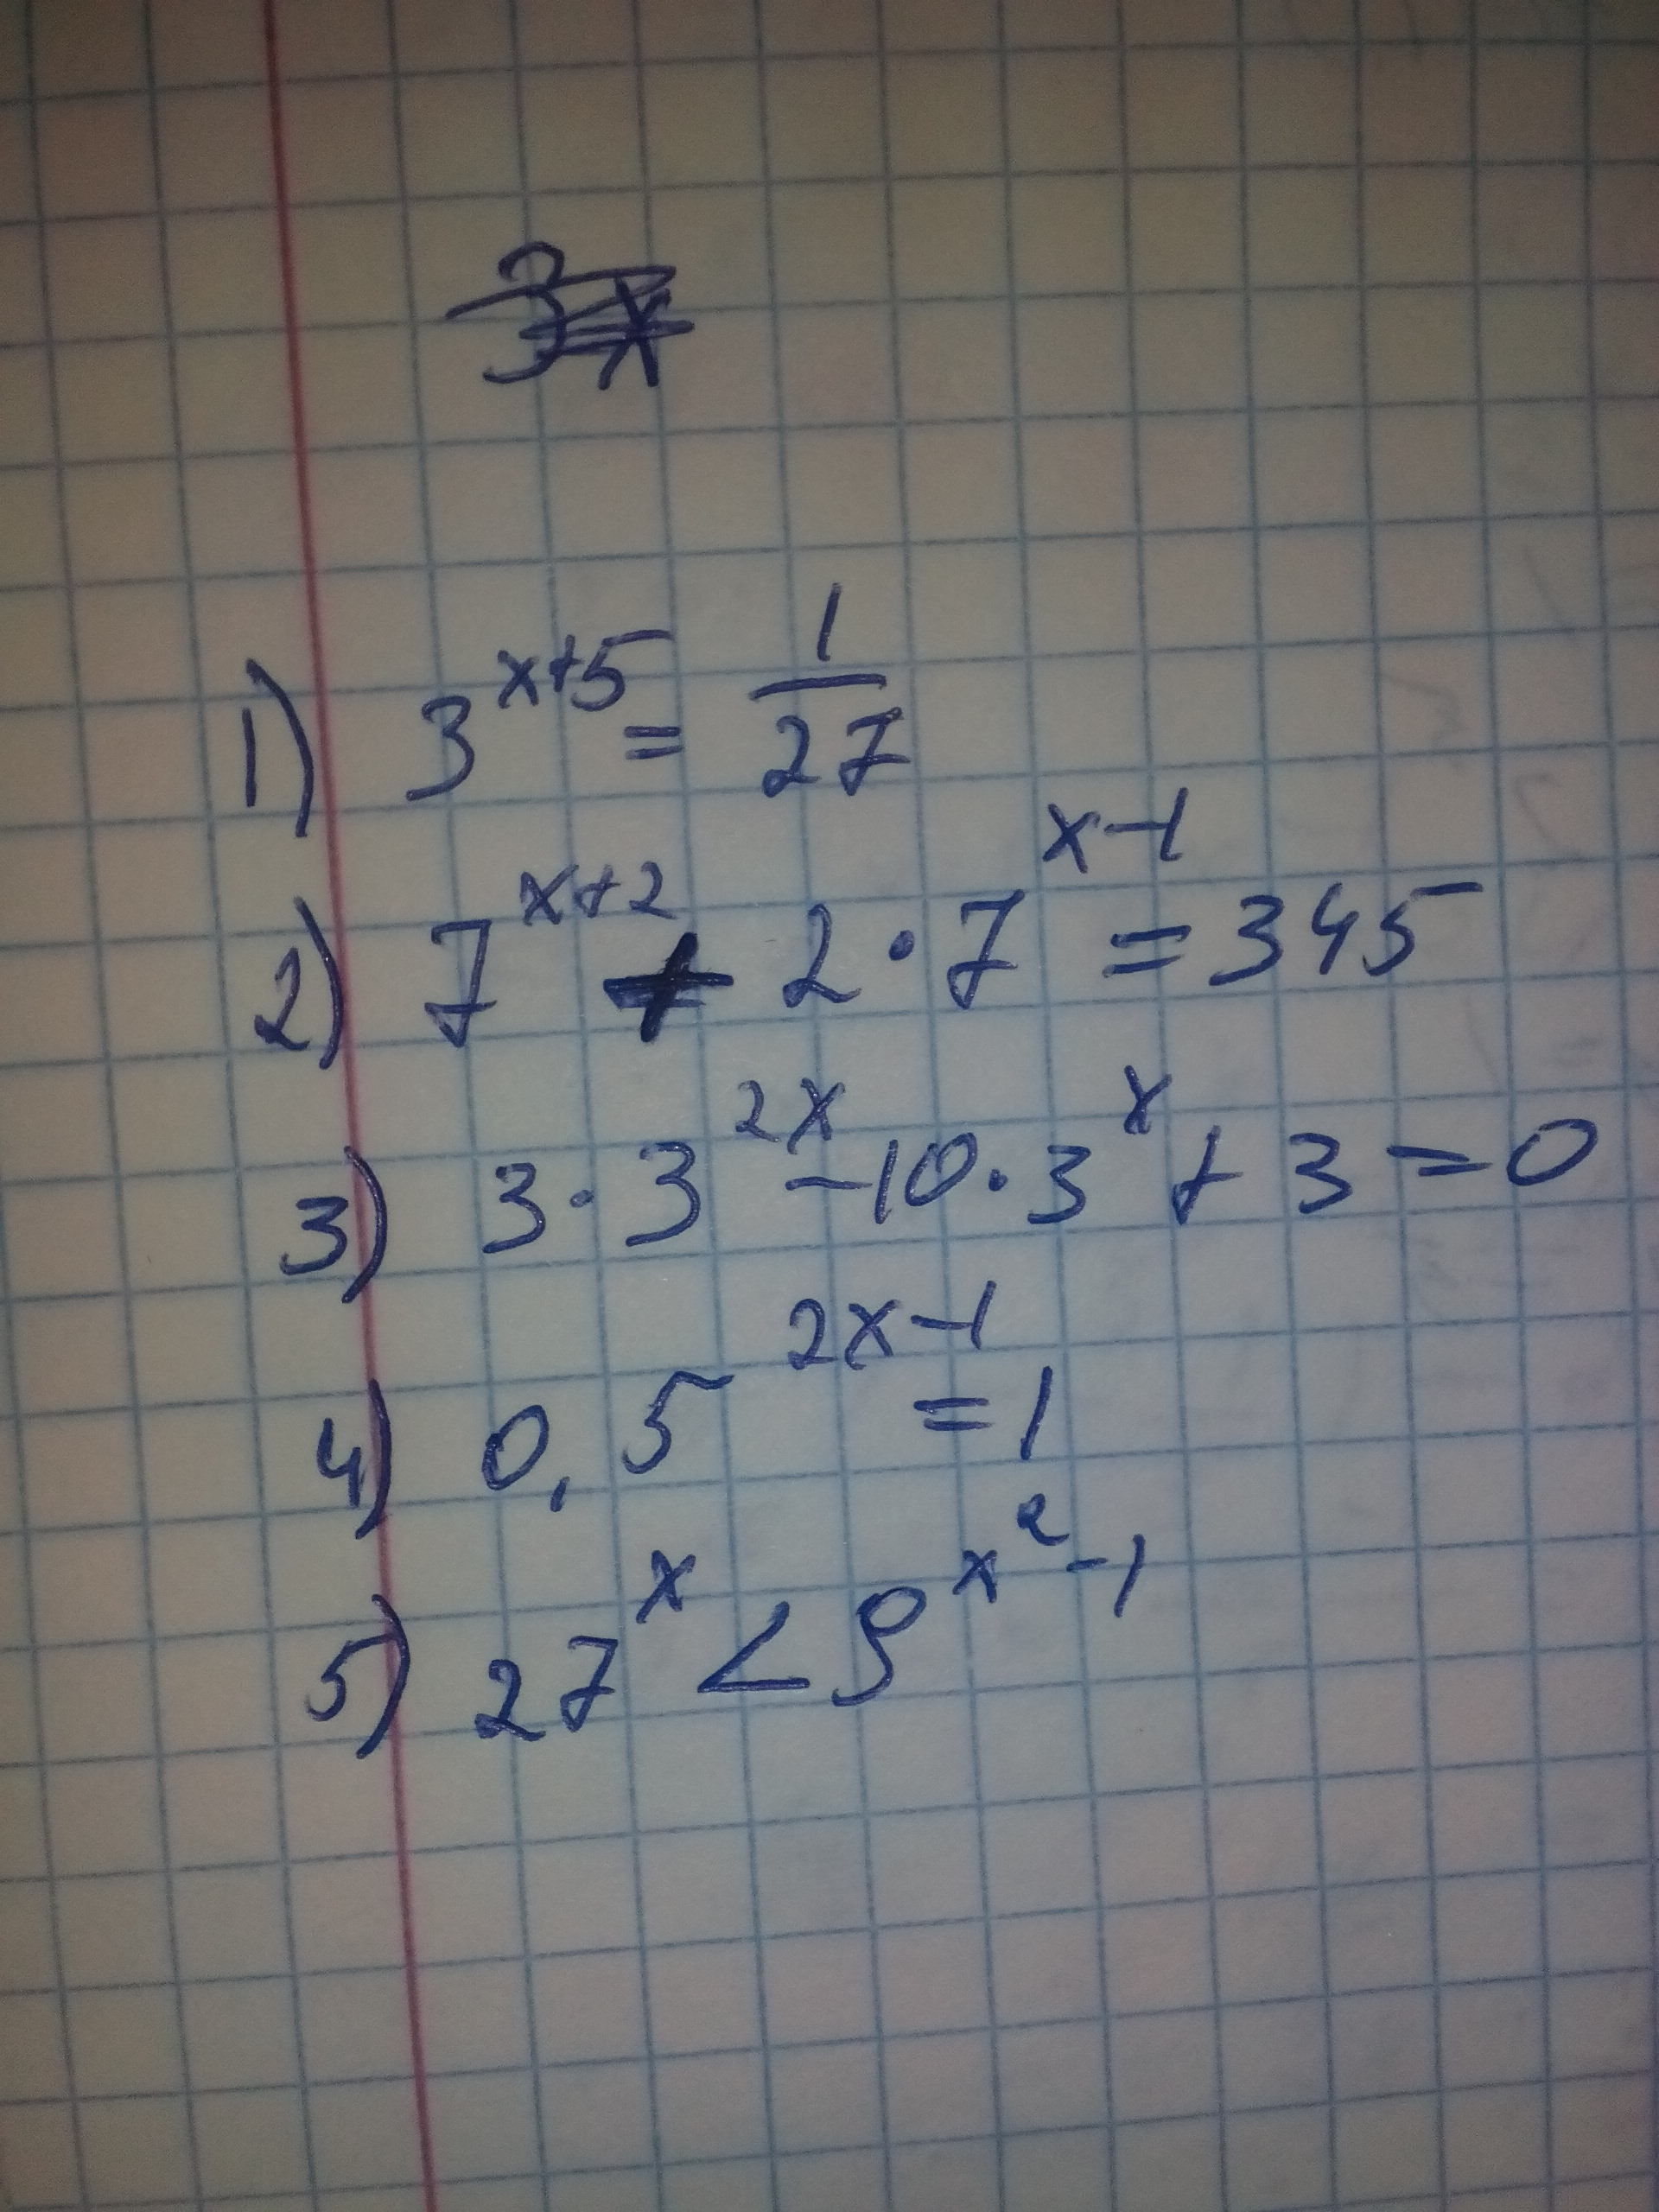 1) 3^{x+5} = \frac{1}{27}
2) 7^{x+2} + 2 · 7^{x-1} = 345
3) 3 · 3^{2x} - 10 · 3^x + 3 = 0
4) 0,5^{2x-1} = 1
5) 27^x < 9^{x^2-1}